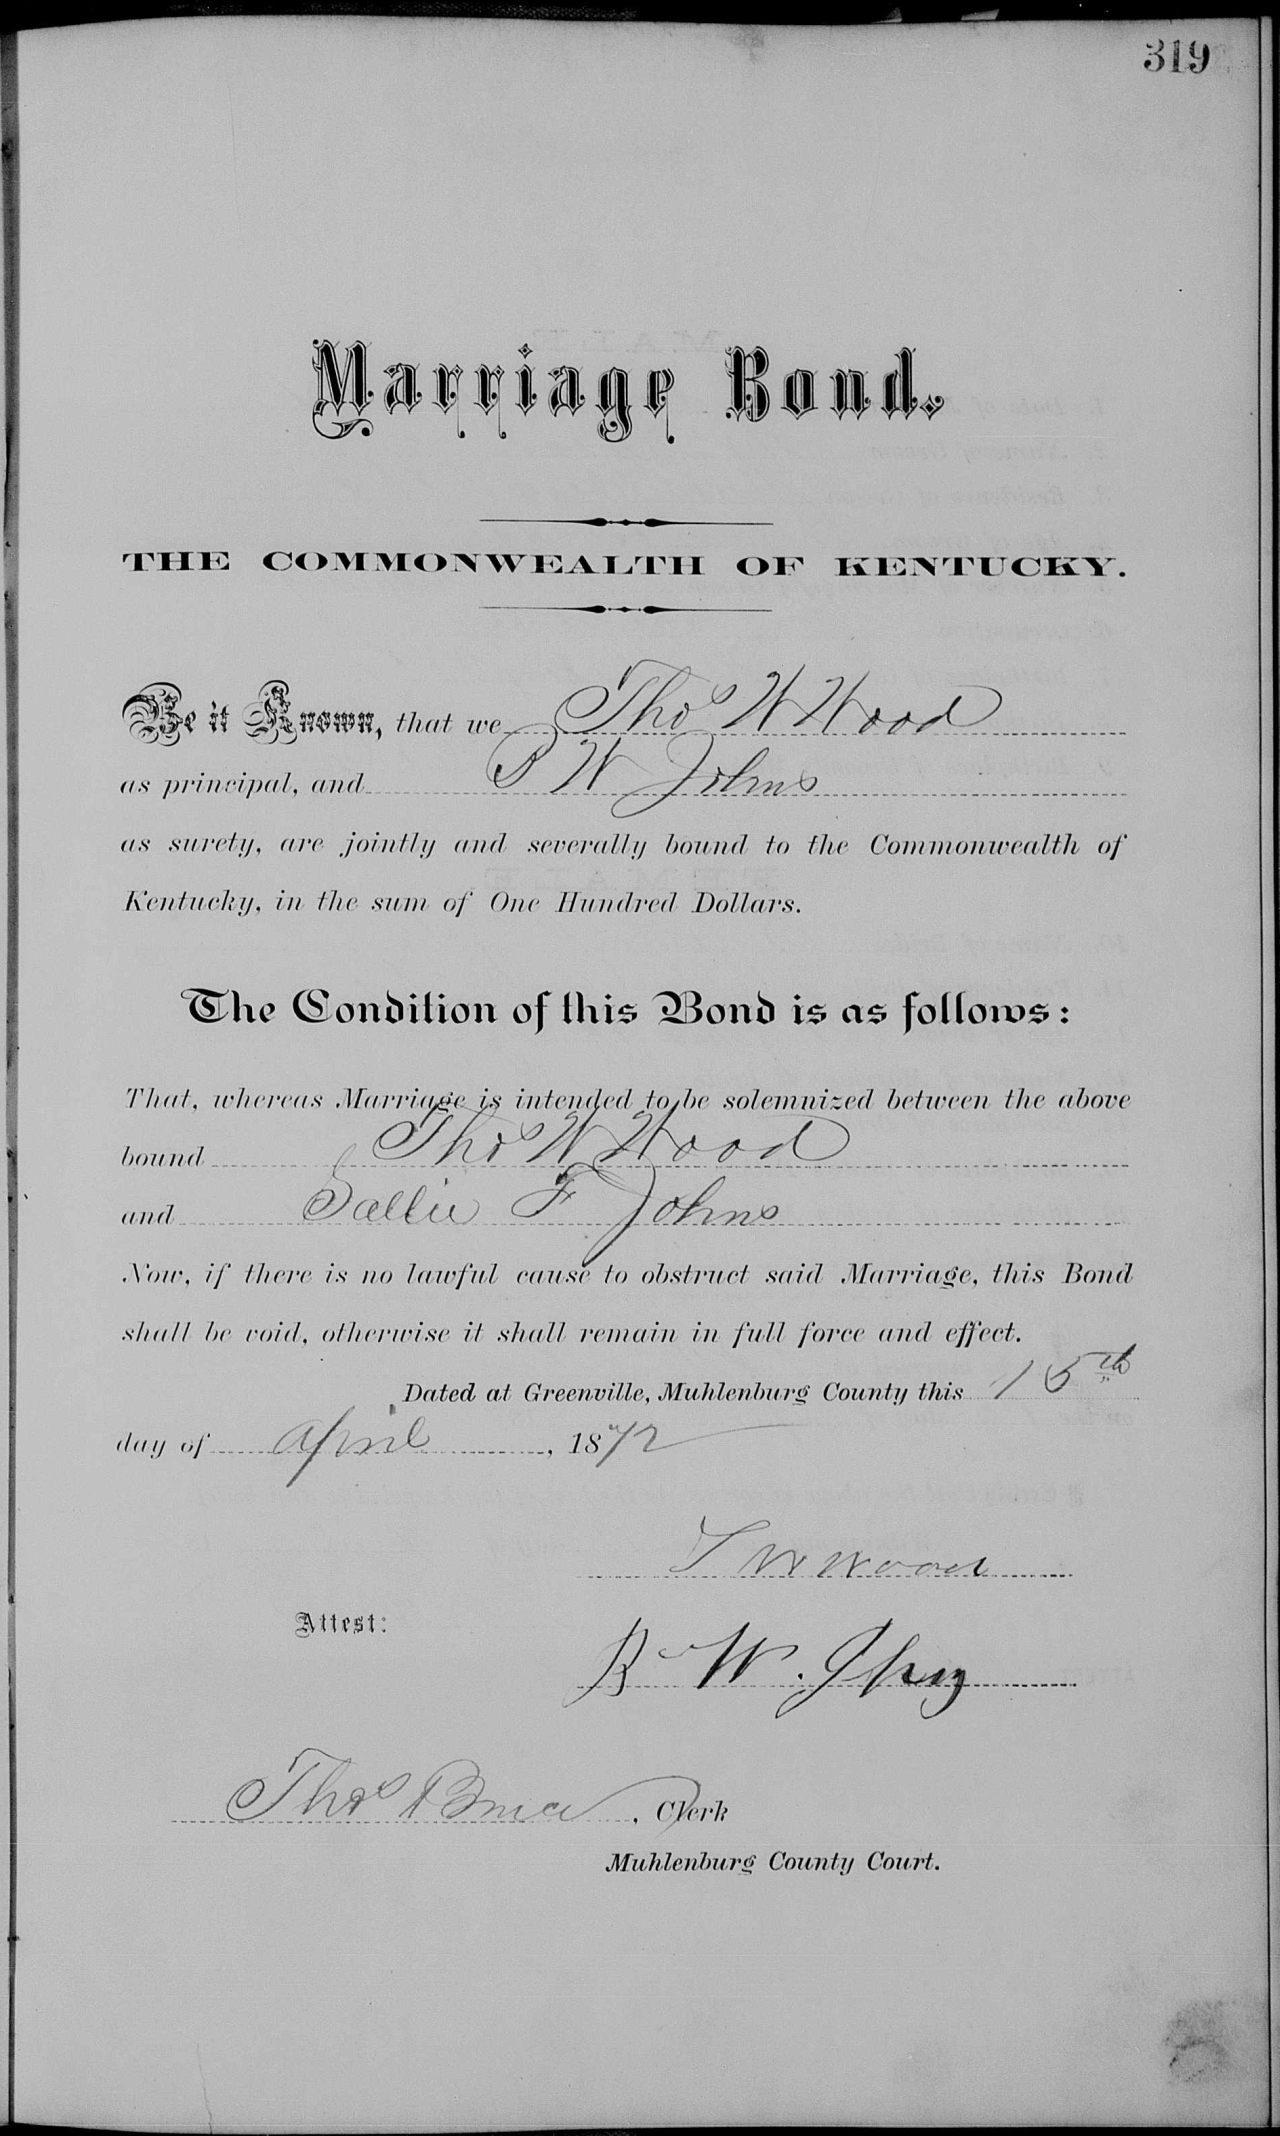 319
Marriage Bond.
THE COMMONWEALTH OF KENTUCKY.
Be it Known, that we Thos W Wood
as principal, and B W Johns
as surety, are jointly and severally bound to the Commonwealth of
Kentucky, in the sum of One Hundred Dollars.
The Condition of this Bond is as follows:
That, whereas Marriage is intended to be solemnized between the above
bound Thos W Wood
and Sallie F Johns
Now, if there is no lawful cause to obstruct said Marriage, this Bond
shall be void, otherwise it shall remain in full force and effect.
Dated at Greenville, Muhlenburg County this 15th
day of April, 1872
T W Wood
Attest:
B W.
Thos Bruce, Clerk
Muhlenburg County Court.